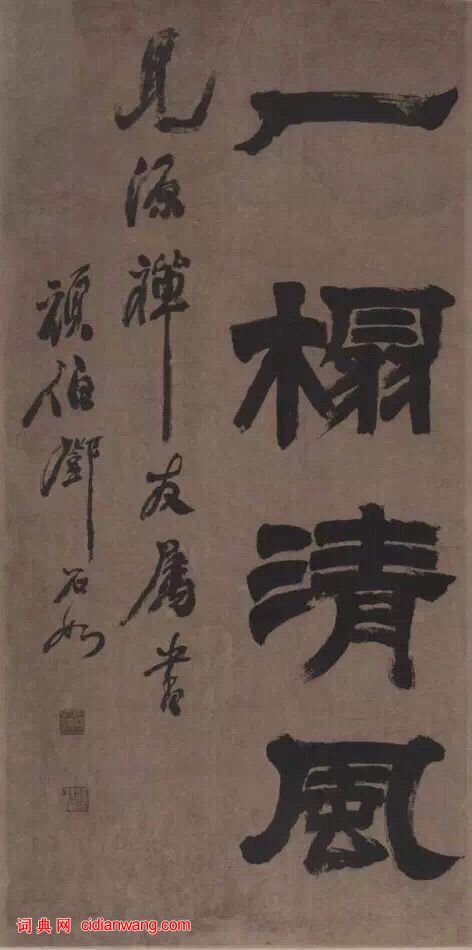 一榻清風
見源禪友屬書
頑伯鄧石如
词典网 cidianwang.com